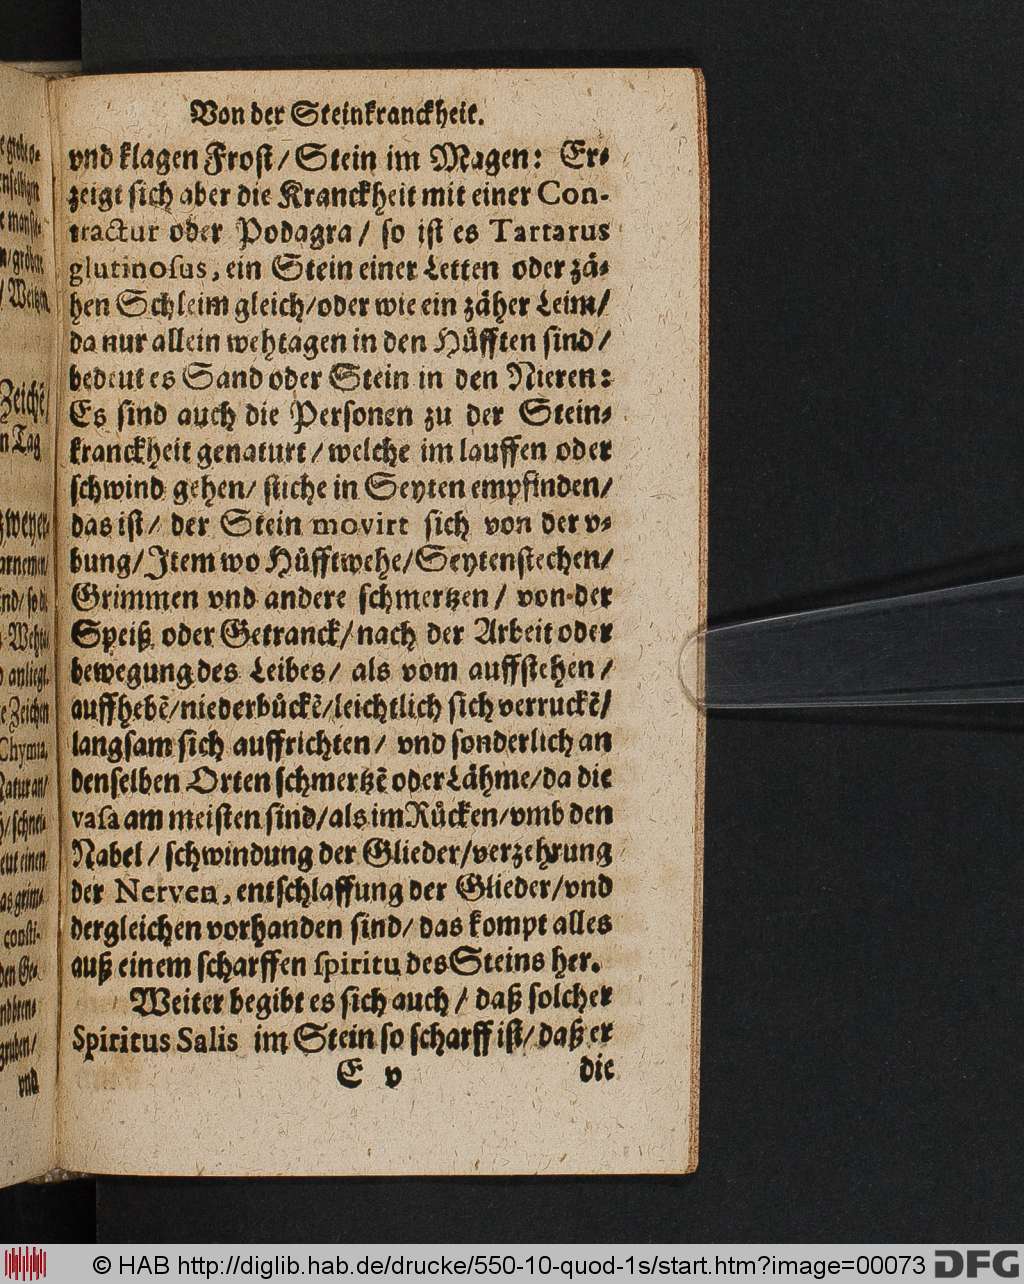 Von der Steinkranckheit.
vnd klagen Frost/ Stein im Magen: Er-
zeigt sich aber die Kranckheit mit einer Con-
tractur oder Podagra/ so ist es Tartarus
glutinosus, ein Stein einer Letten oder zä-
hen Schleim gleich/oder wie ein zäher Leim/
da nur allein wehtagen in den Hüfften sind/
bedeut es Sand oder Stein in den Nieren:
Es sind auch die Personen zu der Stein-
kranckheit genaturt/welche im lauffen oder
schwind gehen/ stiche in Seyten empfinden/
das ist/ der Stein movirt sich von der v-
bung/Item wo Hüfftwehe/Seytenstechen/
Grimmen vnd andere schmertzen/ von der
Speiß oder Getranck/nach der Arbeit oder
bewegung des Leibes/ als vom auffstehen/
auffhebẽ/niederbückẽ/leichtlich sich verruckẽ/
langsam sich auffrichten/ vnd sonderlich an
denselben Orten schmertzẽ oder Lähme/da die
vasa am meisten sind/als im Rücken/vmb den
Nabel/ schwindung der Glieder/verzehrung
der Nerven, entschlaffung der Glieder/vnd
dergleichen vorhanden sind/ das kompt alles
auß einem scharffen spiritu des Steins her.
Weiter begibt es sich auch/ daß solcher
Spiritus Salis im Stein so scharff ist/daß er
E v die
Zeichẽ
n Tag
zweyer-
Chymia,
consti-
vnd
© HAB http://diglib.hab.de/drucke/550-10-quod-1s/start.htm?image=00073 DFG